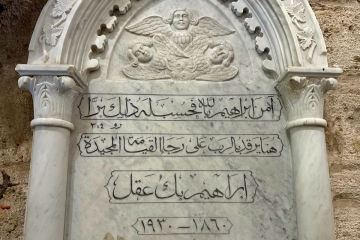 آمن ابراهيم بالله فحسب له ذلك برًا
رو ٣:٤
هنا يرقد بالرب على رجا القيامة المجيدة
ابراهيم بك عقل
١٨٦٠ – ١٩٣٠